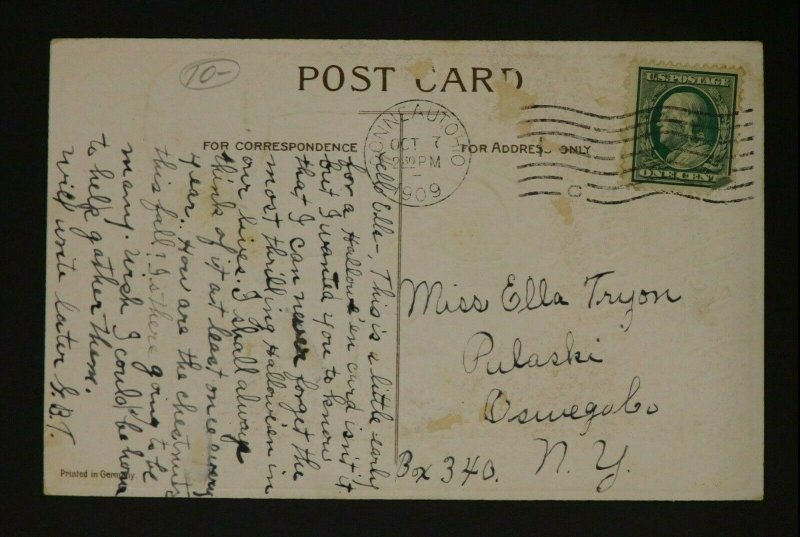 10-
POST CARD
FOR CORRESPONDENCE
FOR ADDRESS ONLY
CONNEAUT, OHIO
OCT 7
PM
1909
C
U.S. POSTAGE
ONE CENT
Hello Ella, This is a little early
for a Hallowe'en card isn't it
but I wanted you to know
that I can never forget the
most thrilling Hallowe'en in
our lives. I shall always
think of it at least once every
year. How are the chestnuts
this fall? Is there going to be
many. Wish I could be home
to help gather them.
Will write later
Miss Ella Tryon
Pulaski
Oswego Co
Box 340. N.Y.
Printed in Germany